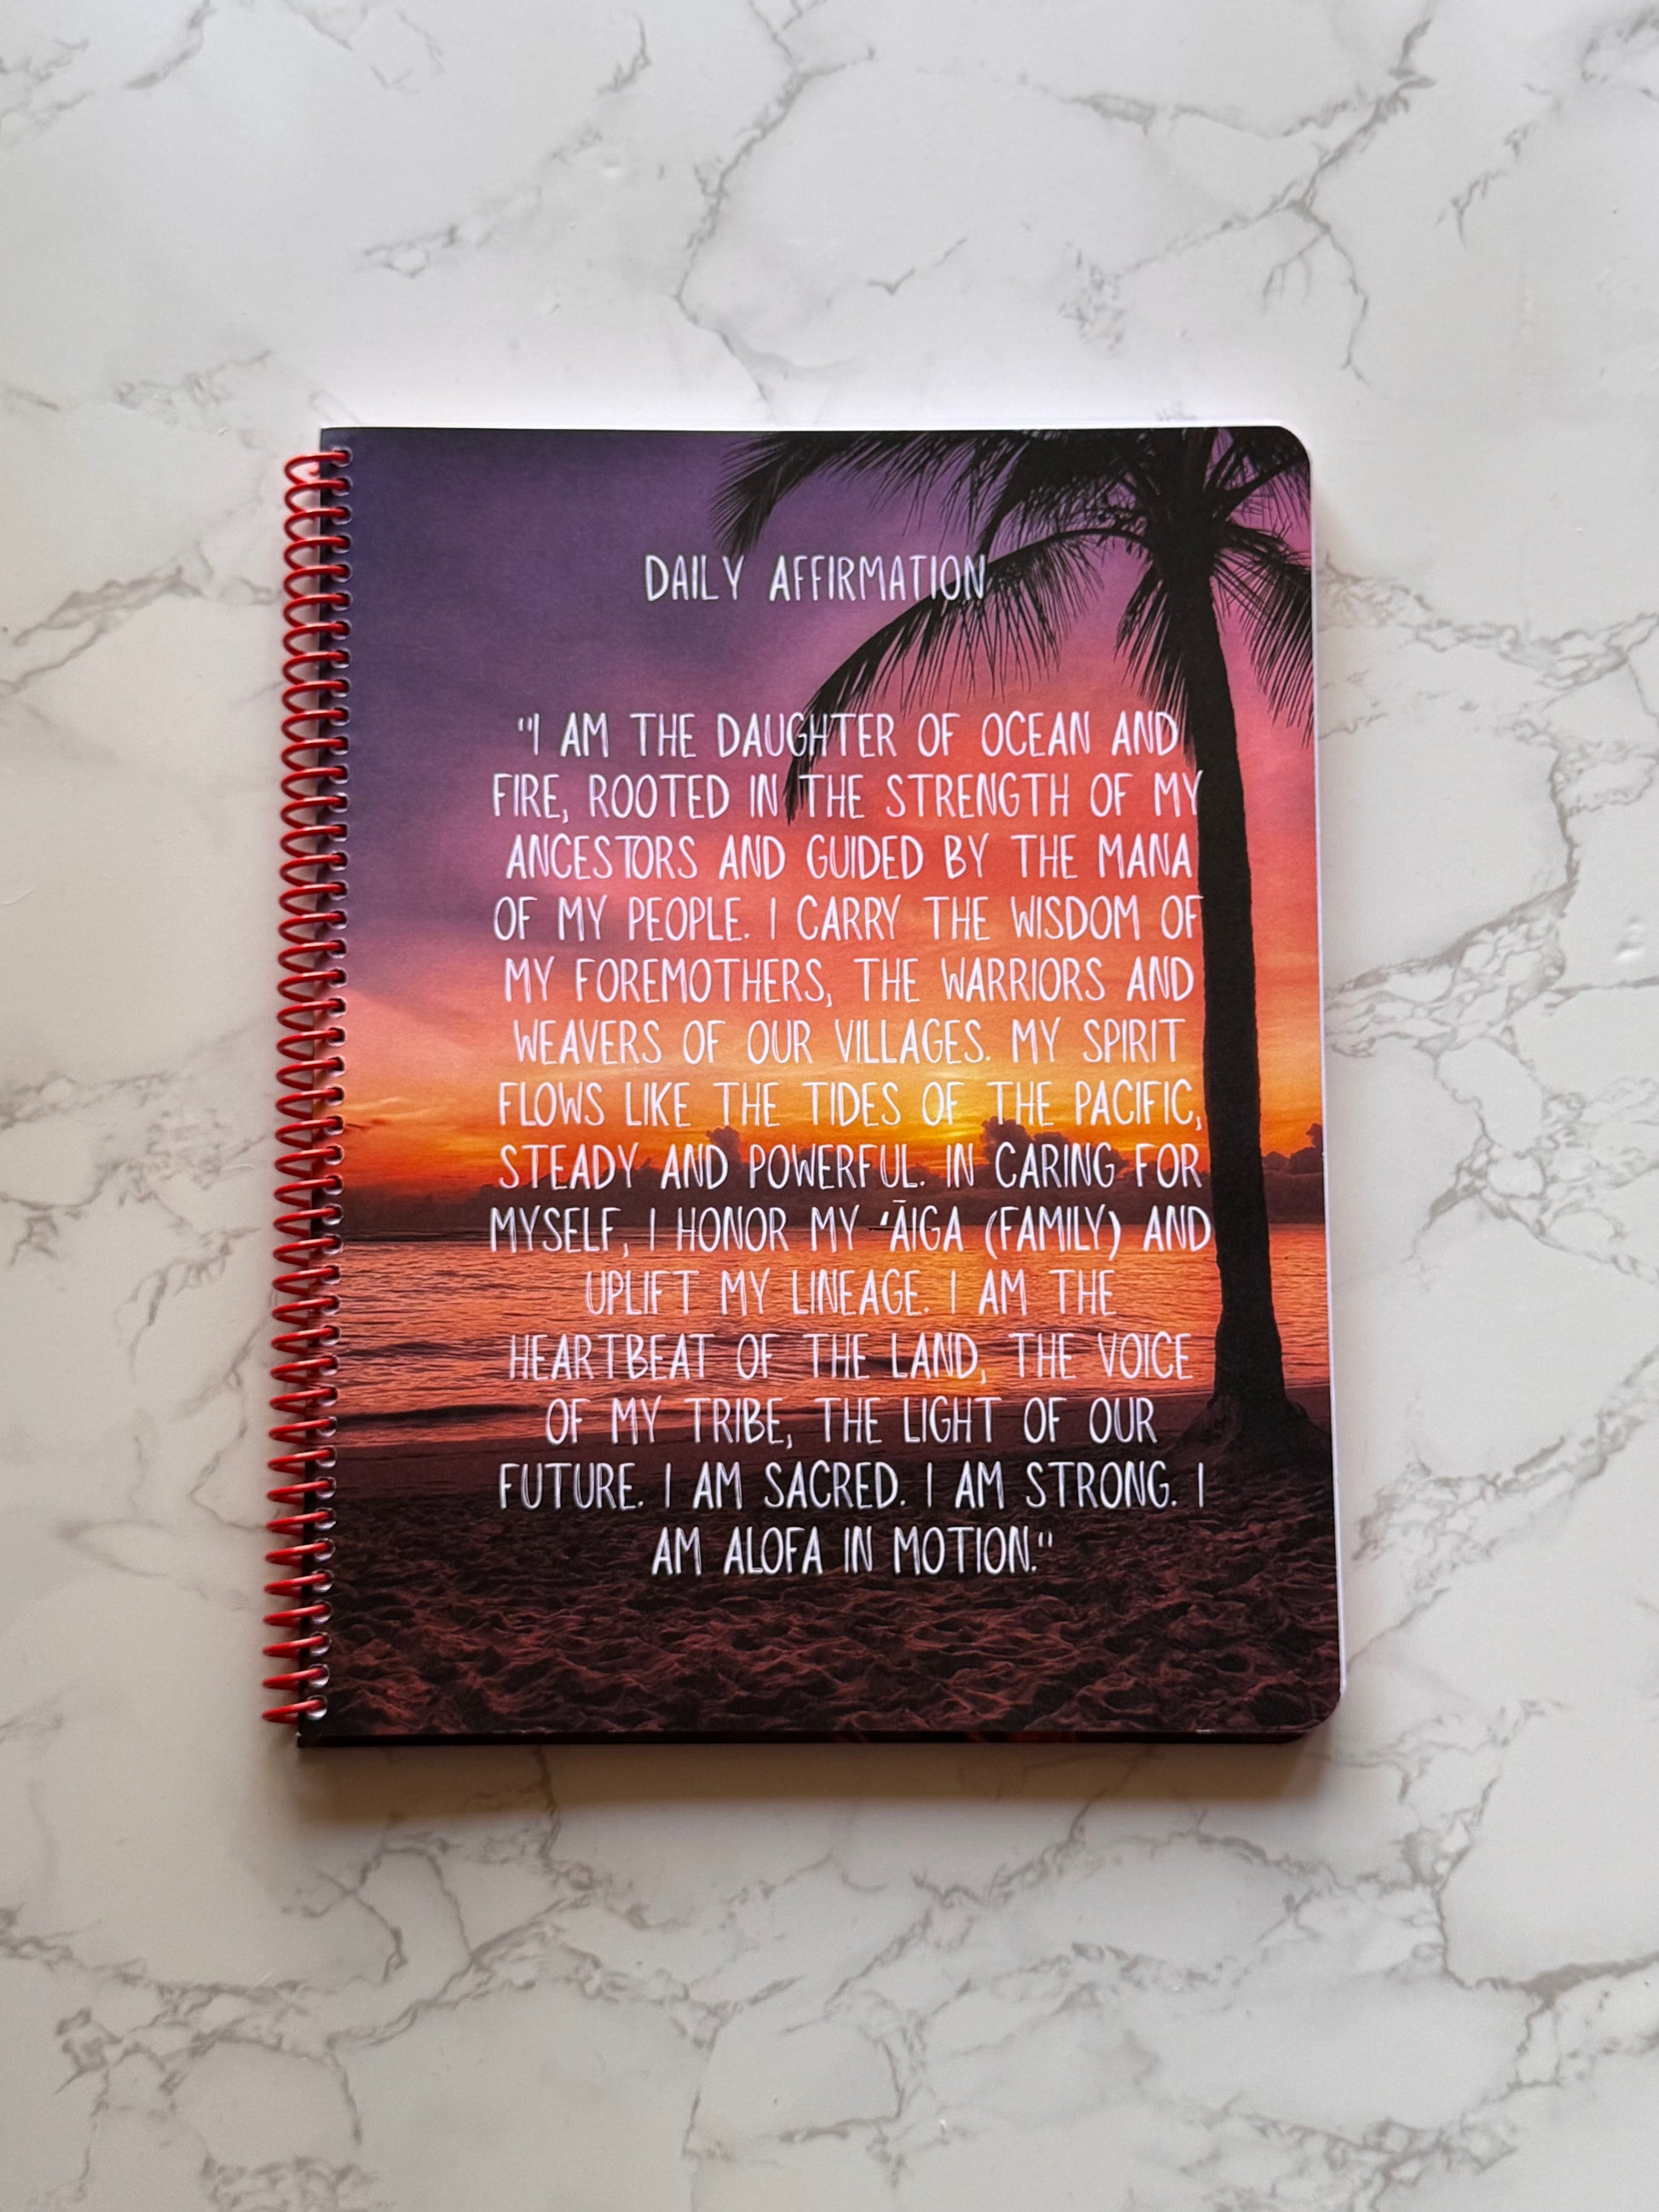 DAILY AFFIRMATION
"I AM THE DAUGHTER OF OCEAN AND
FIRE, ROOTED IN THE STRENGTH OF MY
ANCESTORS AND GUIDED BY THE MANA
OF MY PEOPLE. I CARRY THE WISDOM OF
MY FOREMOTHERS, THE WARRIORS AND
WEAVERS OF OUR VILLAGES. MY SPIRIT
FLOWS LIKE THE TIDES OF THE PACIFIC,
STEADY AND POWERFUL. IN CARING FOR
MYSELF, I HONOR MY ‘ĀIGA (FAMILY) AND
UPLIFT MY LINEAGE. I AM THE
HEARTBEAT OF THE LAND, THE VOICE
OF MY TRIBE, THE LIGHT OF OUR
FUTURE. I AM SACRED. I AM STRONG. I
AM ALOFA IN MOTION."